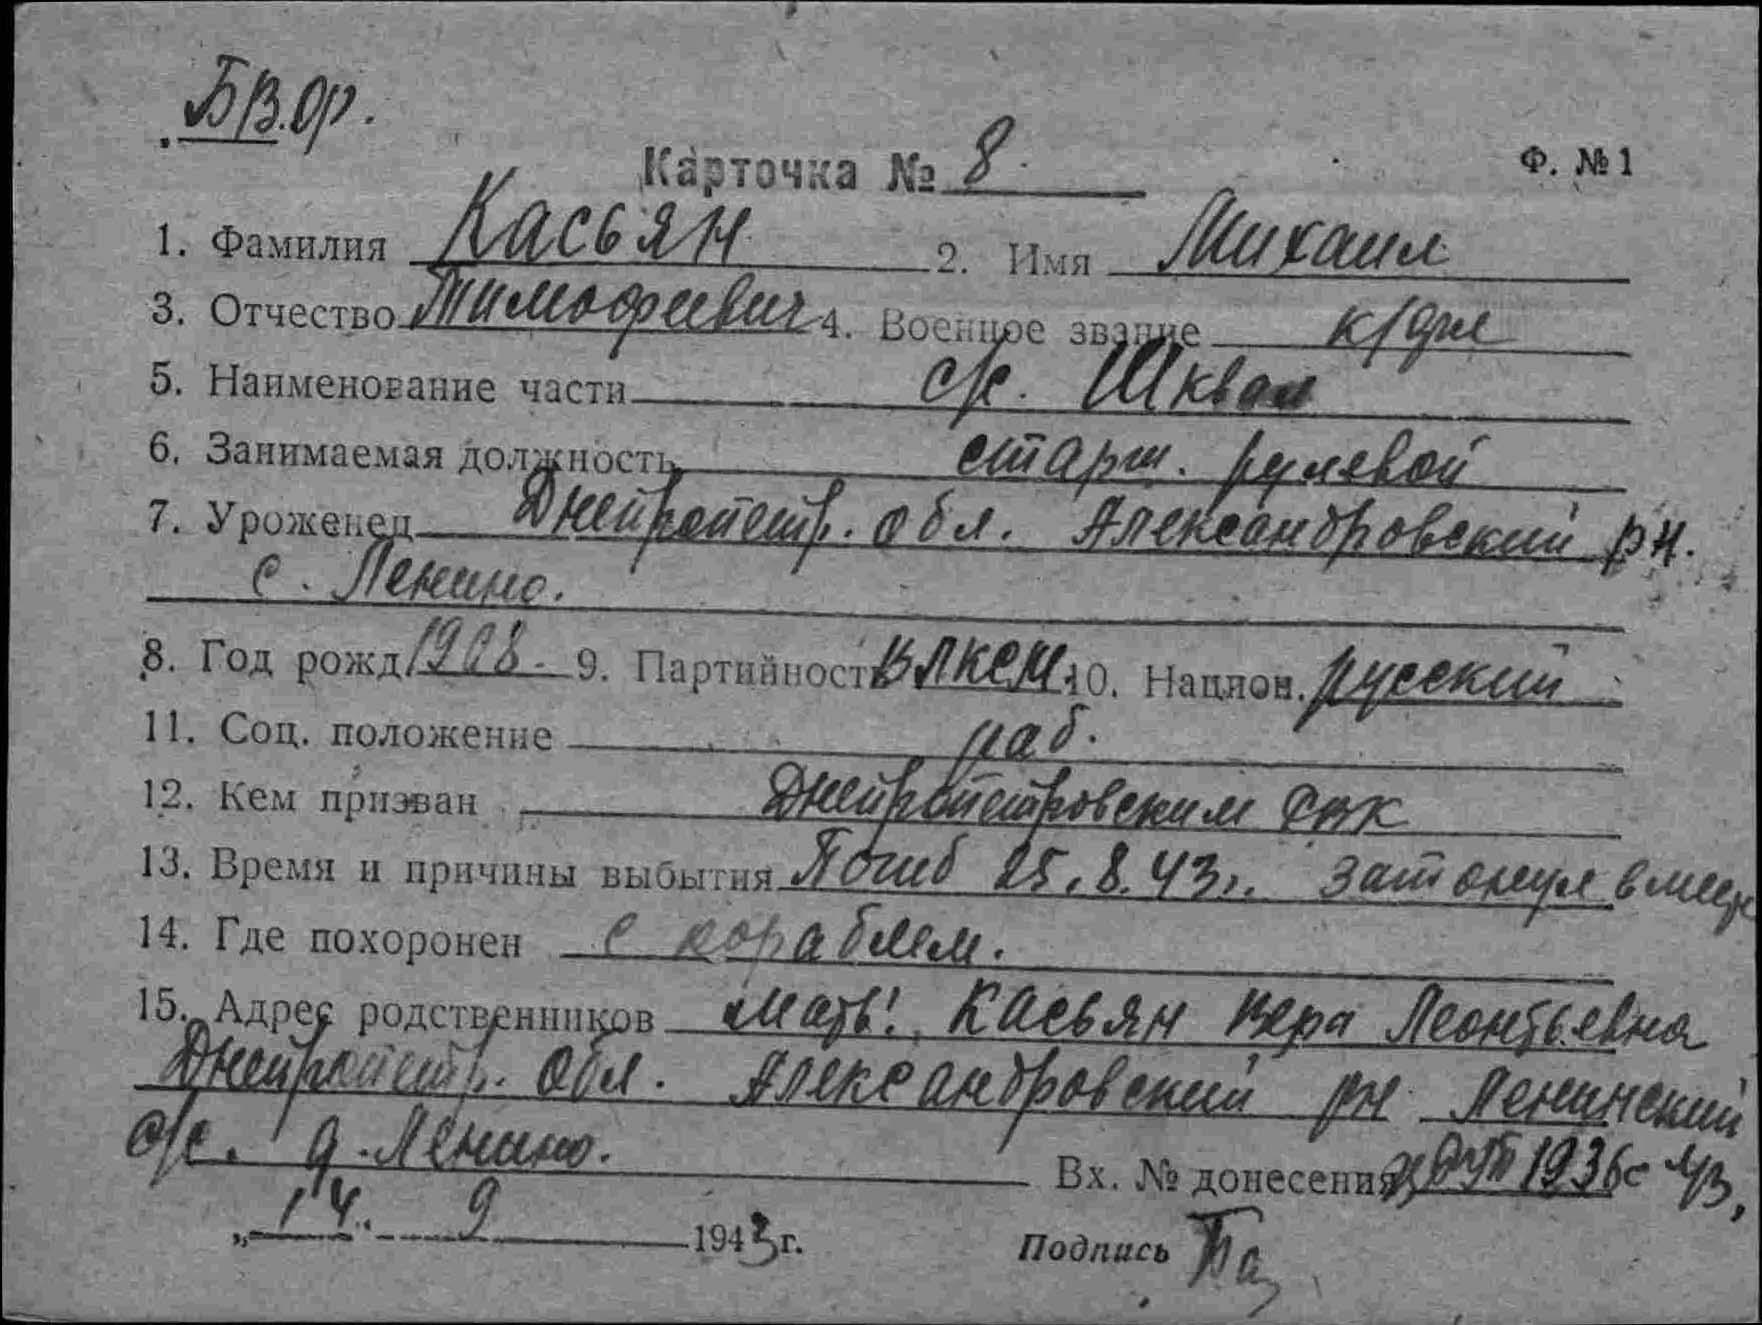 БВ.Ор.
Карточка № 8
Ф. № 1
1. Фамилия Касьян 2. Имя Михаил
3. Отчество Тимофеевич 4. Военное звание к/фл
5. Наименование части с/к. Шквал
6. Занимаемая должность старш. рулевой
7. Уроженец Днепропетр. обл. Александровский р-н.
с. Ленино.
8. Год рожд. 1918. 9. Партийность ВЛКСМ 10. Национ. русский
11. Соц. положение раб.
12. Кем призван Днепропетровским
13. Время и причины выбытия Погиб 25.8.43г. Затонул вместе
14. Где похоронен с кораблем.
15. Адрес родственников мать: Касьян Вера Леонтьевна
Днепропетр. обл. Александровский рн Ленинский
с/с. д. Ленино.
Вх. № донесения 1936с 43,
„14. 9 1943 г.
Подпись